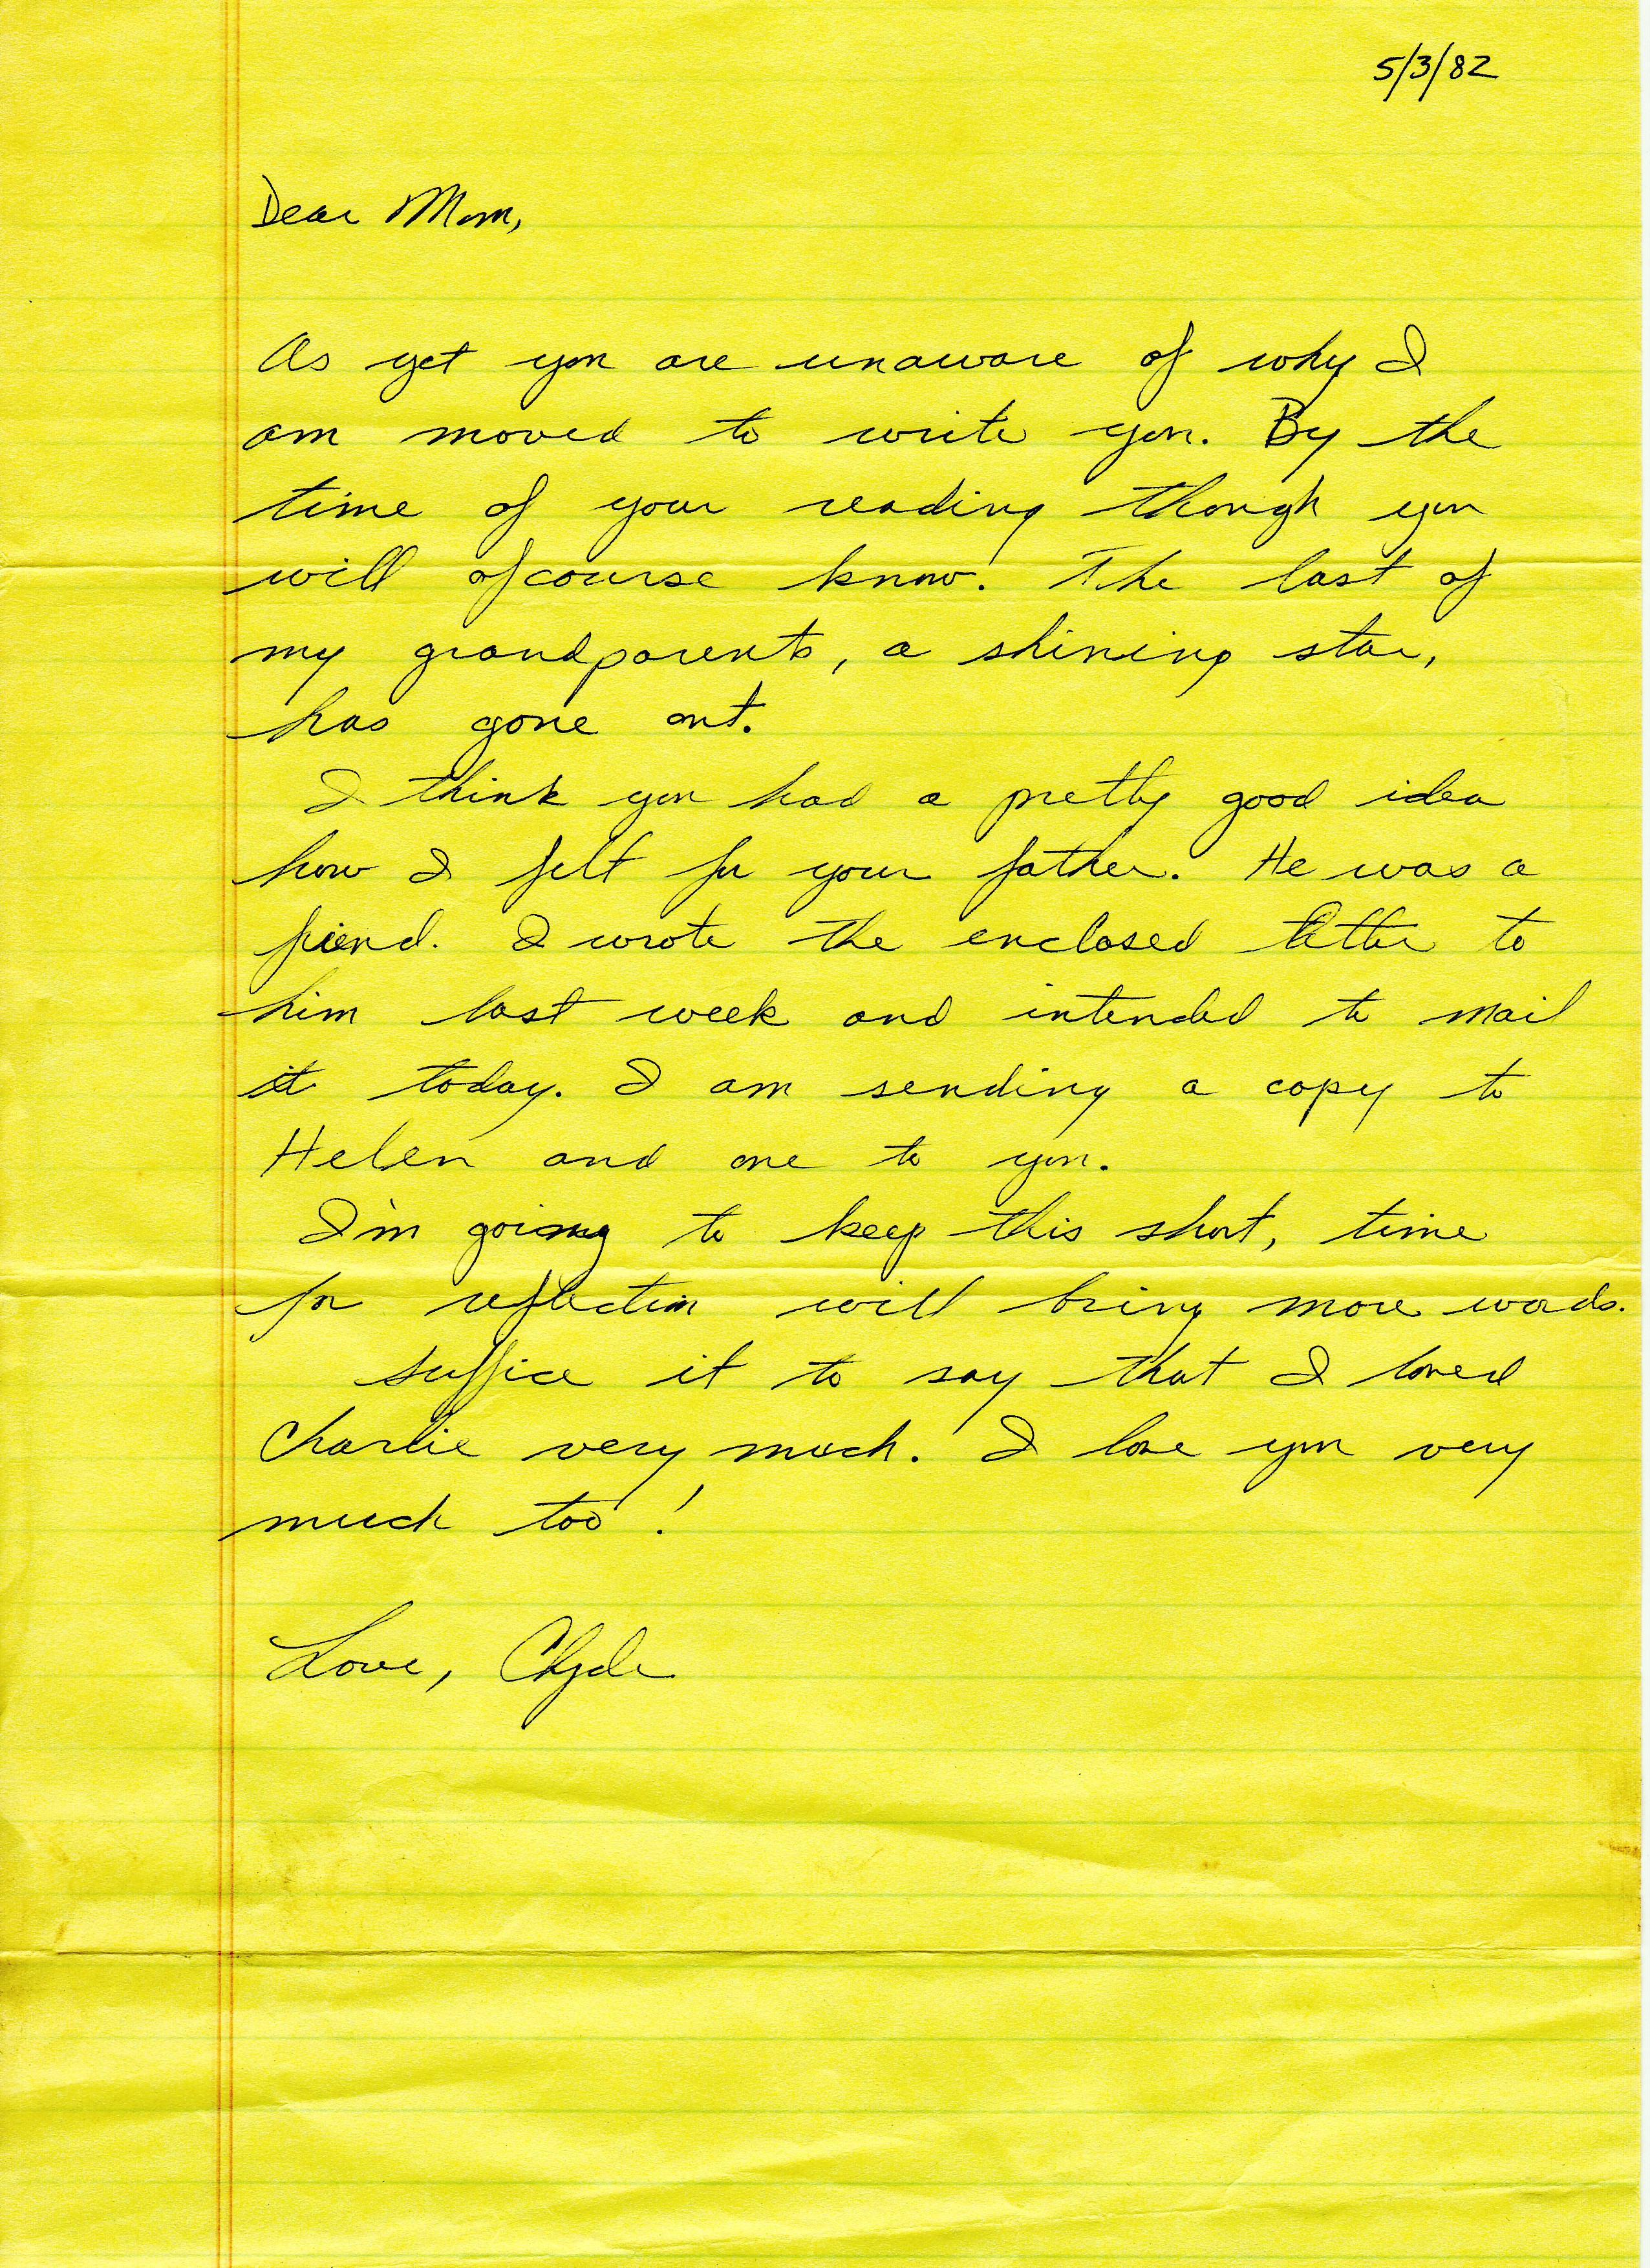 5/3/82
Dear Mom,
As yet you are unaware of why I
am moved to write you. By the
time of your reading though you
will ofcourse know. The last of
my grandparents, a shining star,
has gone out.
I think you had a pretty good idea
how I felt for your father. He was a
friend. I wrote the enclosed letter to
him last week and intended to mail
it today. I am sending a copy to
Helen and one to you.
I'm going to keep this short, time
for reflection will bring more words.
Suffice it to say that I loved
Charlie very much. I love you very
much too!
Love, Clyde